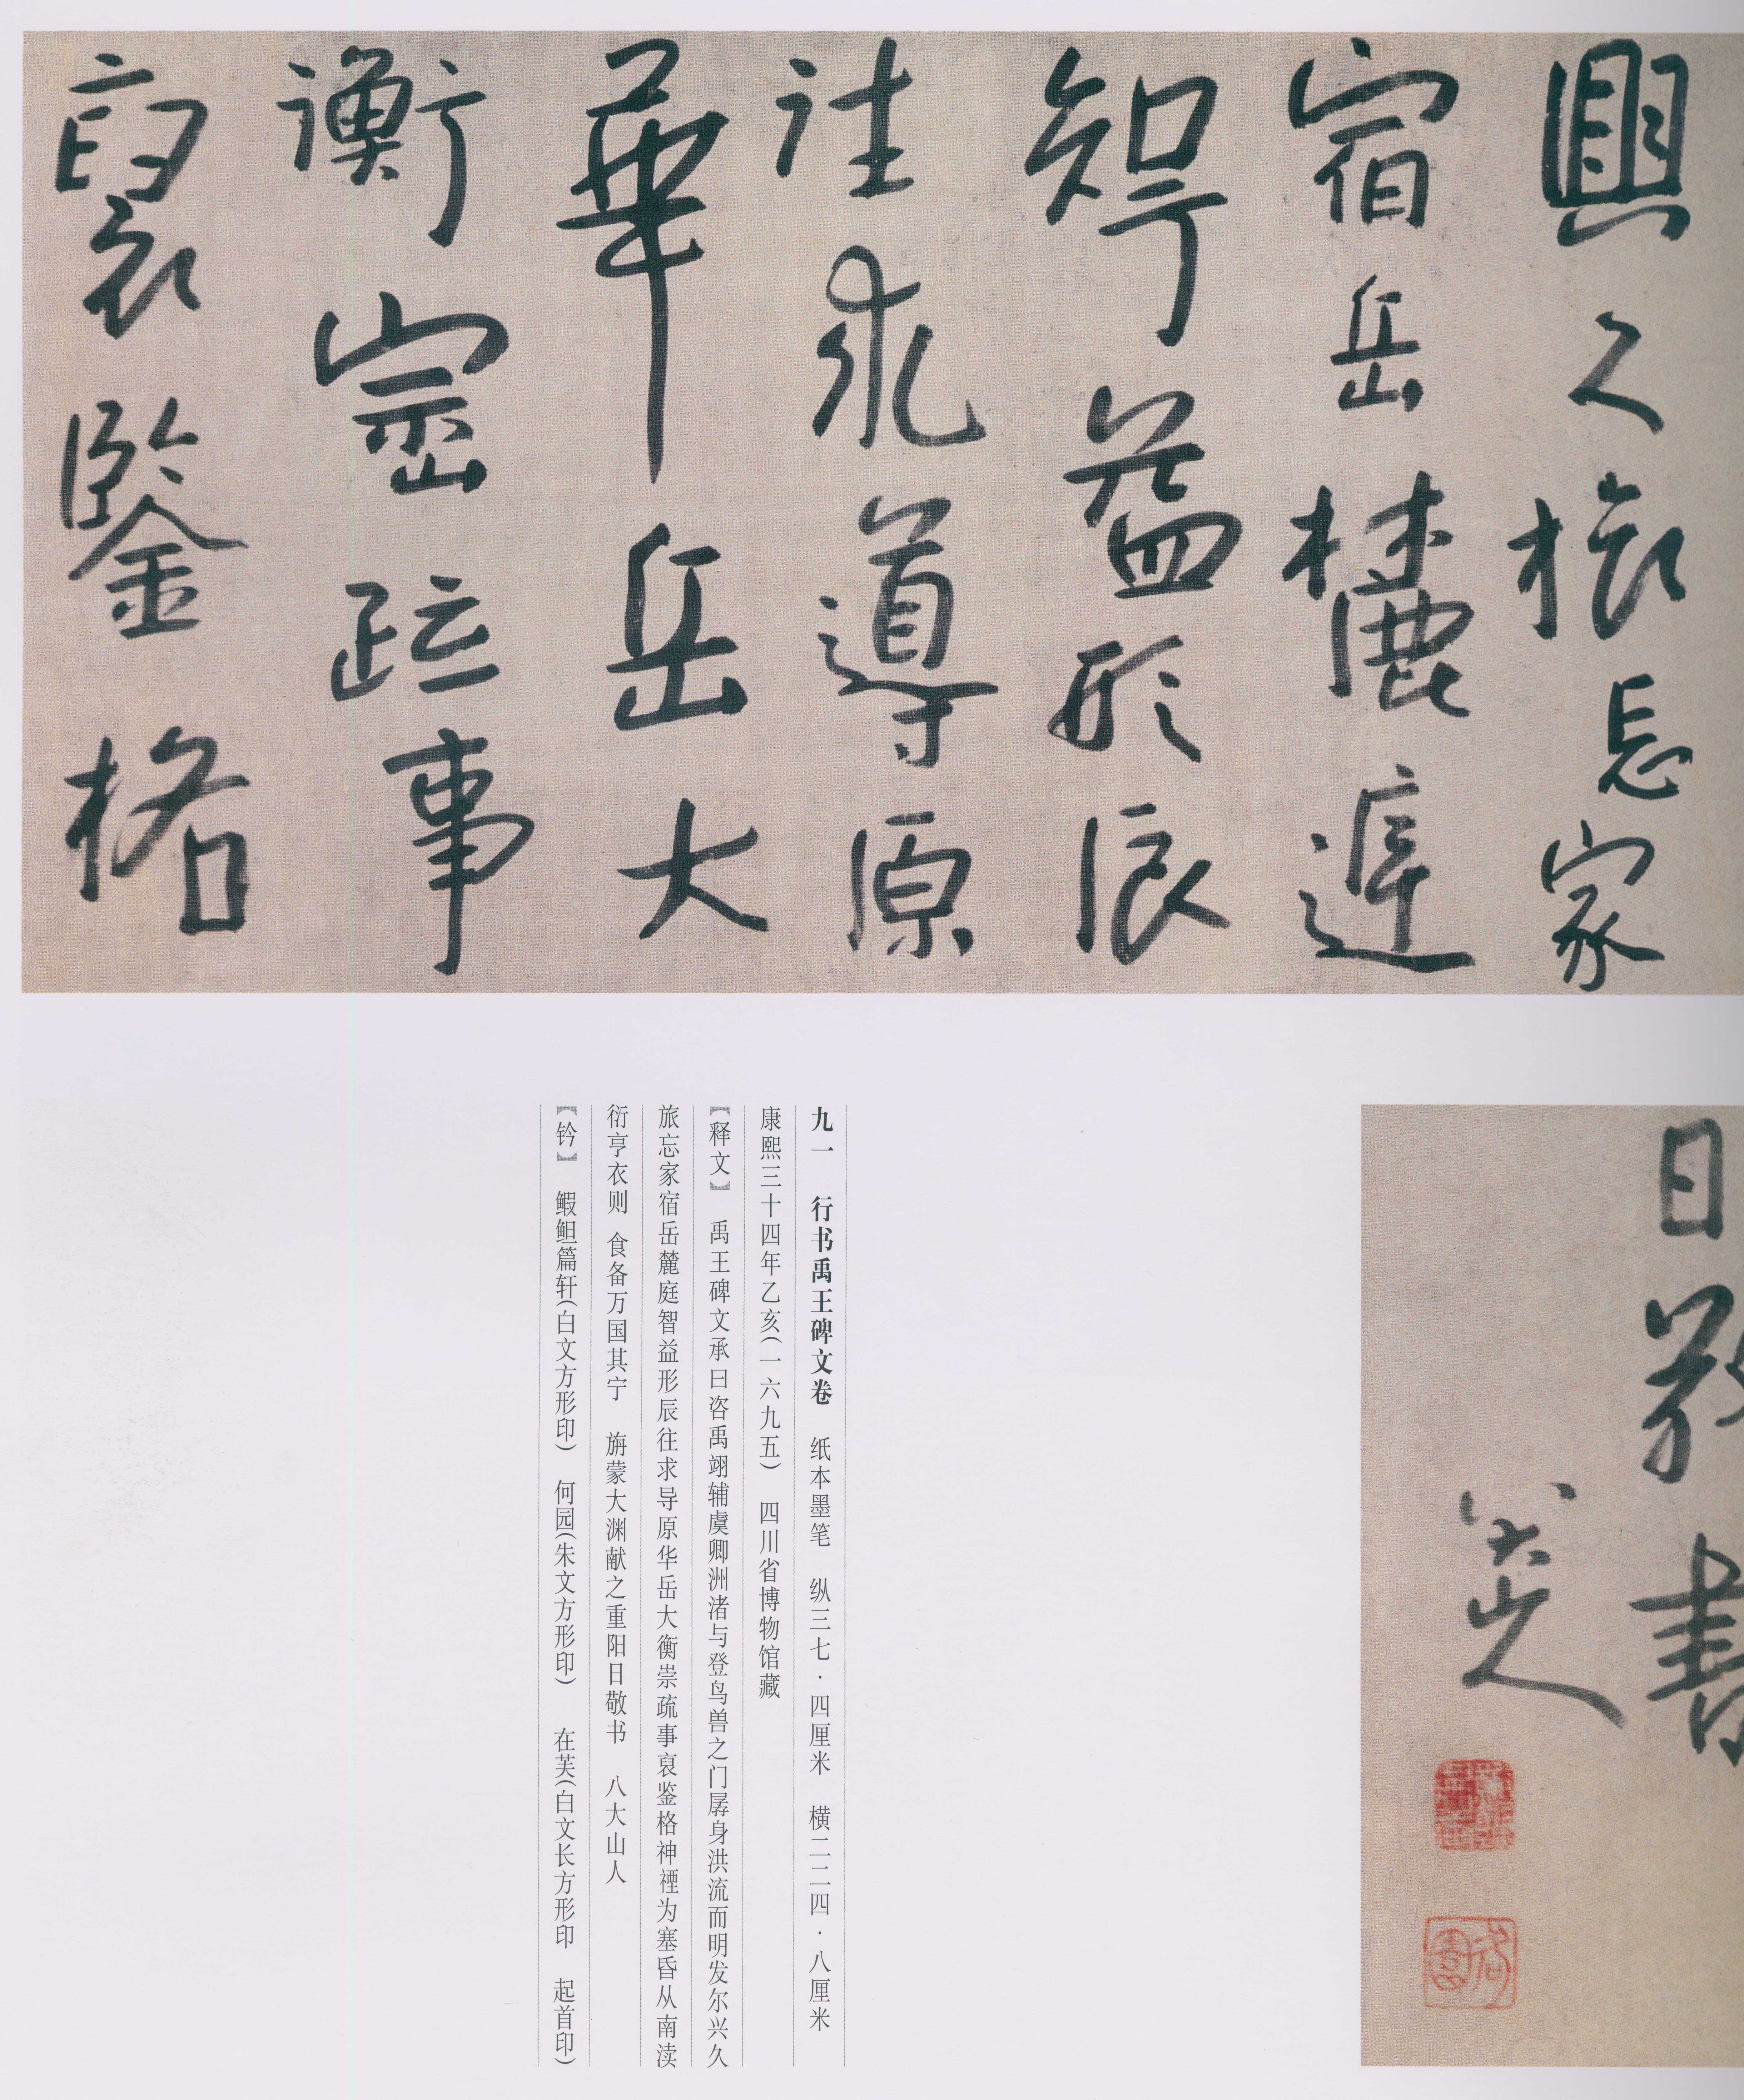 興久旅忘家
宿岳麓遅
智益形辰
往求導原
華岳大
衡崈疏事
裒鑒格
日敬書
八大山人
九一　行书禹王碑文卷　纸本墨笔　纵三七·四厘米　横二二四·八厘米
康熙三十四年乙亥(一六九五)　四川省博物馆藏
【释文】　禹王碑文承曰咨禹翊辅虞卿洲渚与登鸟兽之门孱身洪流而明发尔兴久
旅忘家宿岳麓庭智益形辰往求导原华岳大衡崇疏事裒鉴格神禋为塞昏从南渎
衍亨衣则 食备万国其宁　旃蒙大渊献之重阳日敬书　八大山人
【钤】　鰕𩶅篇轩(白文方形印)　何园(朱文方形印)　在芙(白文长方形印　起首印)